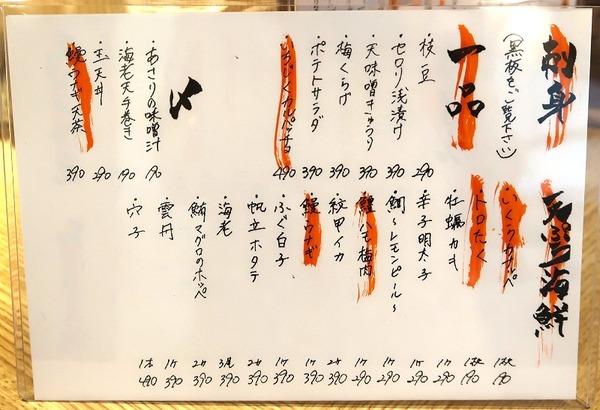 刺身
(黒板をご覧下さい)
一品
・枝豆 290
・セロリ浅漬け 390
・天味噌きゅうり 390
・梅くらげ 390
・ポテトサラダ 390
〆
・あさりの味噌汁 190
・海老天手巻き 190
・玉天丼 290
・鰻ウナギ天茶 390
天ぷら海鮮
・いくらカナッペ 1枚 190
・トロたく 1枚 190
・牡蠣カキ 1ケ 290
・辛子明太子 1ケ 290
・鯛〜レモンピール〜 1ケ 290
・鱧ハモ梅肉 1ケ 290
・紋甲イカ 2ケ 390
・鰻ウナギ 1ケ 390
・ふぐ白子 1ケ 390
・帆立ホタテ 2ケ 390
・海老 3尾 390
・鮪マグロのホッペ 2ケ 390
・雲丹 1ケ 390
・穴子 1本 490